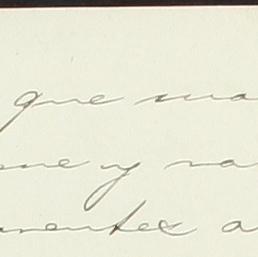 que ma
ne y va
mentes a